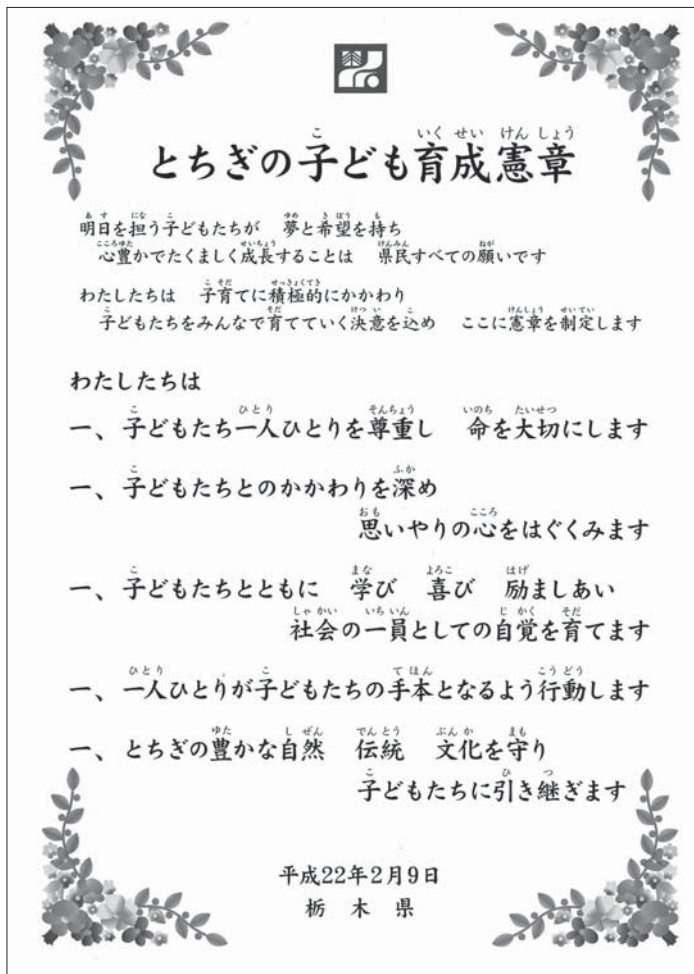 とちぎの子ども育成憲章
明日を担う子どもたちが　夢と希望を持ち
心豊かでたくましく成長することは　県民すべての願いです
わたしたちは　子育てに積極的にかかわり
子どもたちをみんなで育てていく決意を込め　ここに憲章を制定します
わたしたちは
一、子どもたち一人ひとりを尊重し　命を大切にします
一、子どもたちとのかかわりを深め
思いやりの心をはぐくみます
一、子どもたちとともに　学び　喜び　励ましあい
社会の一員としての自覚を育てます
一、一人ひとりが子どもたちの手本となるよう行動します
一、とちぎの豊かな自然　伝統　文化を守り
子どもたちに引き継ぎます
平成22年2月9日
栃　木　県